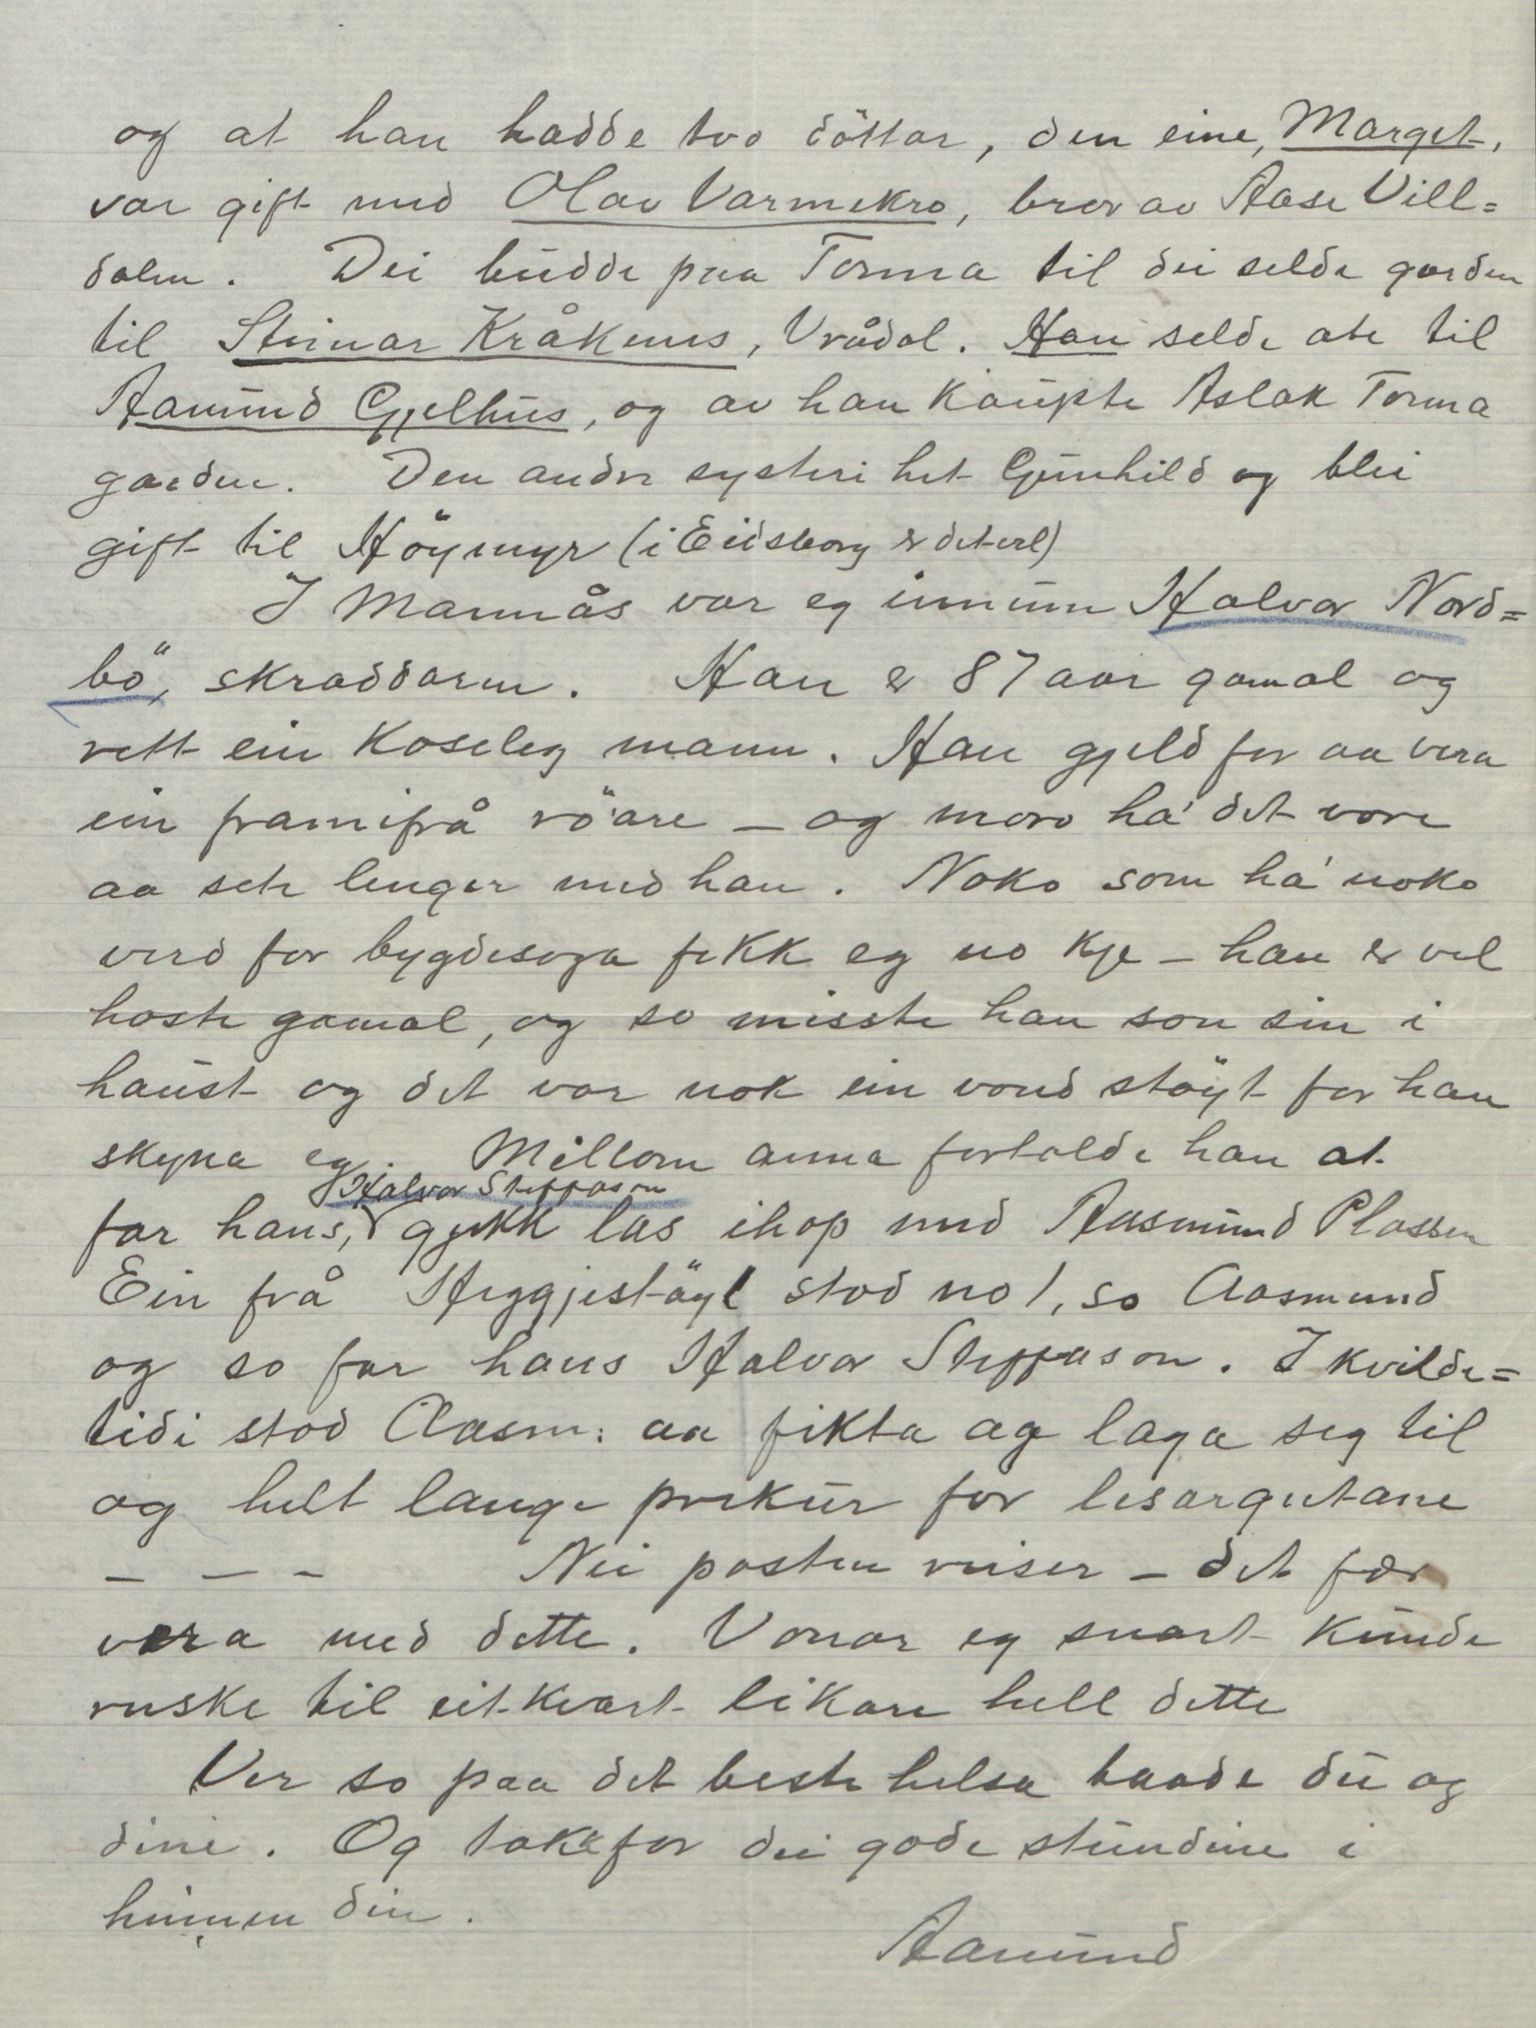 og at han hadde tvo döttar, den eine, Margit,
var gift med Olav Varmekro, bror av Aase Vill=
dalen. Dei budde paa Torma til dei selde garden
til Steinar Kråkenes, Vrådal. Han selde ate til
Aamund Gjelhus, og av han kaupte Aslak Torma
garden. Den andre systeri het Gunhild og blei
gift til Höymyr (i Eidsborg er det vel)
I Mannås var eg innum Halvor Nord=
bö, skraddaren. Han er 87 aar gamal og
rett ein koseleg mann. Han gjeld for aa vera
ein framifrå rö'are - og moro ha' det vore
aa sete lenger med han. Noko som ha' noko
verd for bygdesoga fekk eg no kje - han er vel
haste gamal, og so misste han son sin i
haust og det var nok ein vond stöyt for han
skyna eg. Millom anna fortalde han at
Halvor Steffason
far hans, gjekk las ihop med Aasmund Plassen
Ein frå Heggjestöyl stod no 1, so Aasmund
og so far hans Halvor Steffason. I kvilde=
tidi stod Aasm: aa fikta og laga seg til
og helt lange prekur for lesargutane
- - - Nei posten reiser - det fær
vera med dette. Vonar eg snart kunde
ruske til eit-kvart likare hell dette
Ver so paa det beste helsa baade du og
dine. Og takk for dei gode stundine i
heimen din.
Aamund